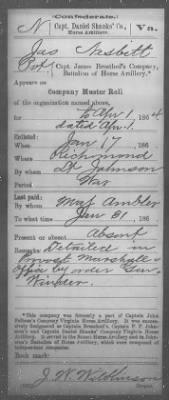 Confederate.
N Capt. Daniel Shanks' Co., Va.
Horse Artillery.
Jas Nesbitt
Pvt, Capt. James Breathed's Company,
Battalion of Horse Artillery.*
Appears on
Company Muster Roll
of the organization named above,
for to Apr 1, 1864
dated Apr 1.
Enlisted:
When Jan 17, 186
Where Richmond
By whom Lt Johnson
Period War
Last paid:
By whom Maj Ambler
To what time Jan 31, 186
Present or absent Absent
Remarks: Detailed in
Provost Marshall's
Office by order Gen
Winder.
*This company was formerly a part of Captain John
Pelham's Company Virginia Horse Artillery. It was succes-
sively designated as Captain Breathed's, Captain P. P. John-
ston's and Captain Daniel Shanks' Company Virginia Horse
Artillery. It served in the Stuart Horse Artillery and in John-
ston's Battalion of Horse Artillery, which were composed of
independent companies.
Book mark:
Copyist.